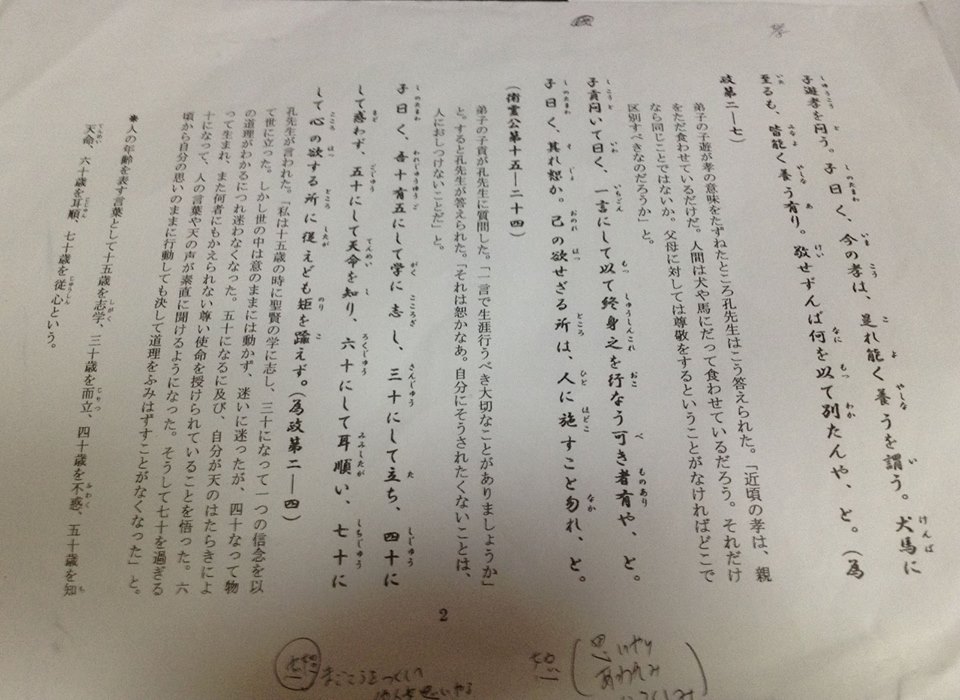 子游孝を問う。子曰く、今の孝は、是れ能く養うを謂う。犬馬に
至るも、皆能く養う有り。敬せずんば何を以て別たんや、と。(為
政第二―七)
弟子の子游が孝の意味をたずねたところ孔先生はこう答えられた。「近頃の孝は、親
をただ食わせているだけだ。人間は犬や馬にだって食わせているだろう。それだけ
なら同じことではないか。父母に対しては尊敬をするということがなければどこで
区別すべきなのだろうか」と。
子貢問いて曰く、一言にして以て終身之を行なう可き者有や、と。
子曰く、其れ恕か。己の欲せざる所は、人に施すこと勿れ、と。
(衛霊公第十五―二十四)
弟子の子貢が孔先生に質問した。「一言で生涯行うべき大切なことがありましょうか」
と。すると孔先生が答えられた。「それは恕かなあ。自分にそうされたくないことは、
人におしつけないことだ」と。
子曰く、吾十有五にして学に志し、三十にして立ち、四十に
して惑わず、五十にして天命を知り、六十にして耳順い、七十に
して心の欲する所に従えども矩を踰えず。(為政第二―四)
孔先生が言われた。「私は十五歳の時に聖賢の学に志し、三十になって一つの信念を以
て世に立った。しかし世の中は意のままには動かず、迷いに迷ったが、四十なって物
の道理がわかるにつれ迷わなくなった。五十になるに及び、自分が天のはたらきによ
って生まれ、また何者にもかえられない尊い使命を授けられていることを悟った。六
十になって、人の言葉や天の声が素直に聞けるようになった。そうして七十を過ぎる
頃から自分の思いのままに行動しても決して道理をふみはずすことがなくなった」と。
※人の年齢を表す言葉として十五歳を志学、三十歳を而立、四十歳を不惑、五十歳を知
天命、六十歳を耳順、七十歳を従心という。
2
思いやり
あわれみ
いつくしみ
恕
まごころをつくして